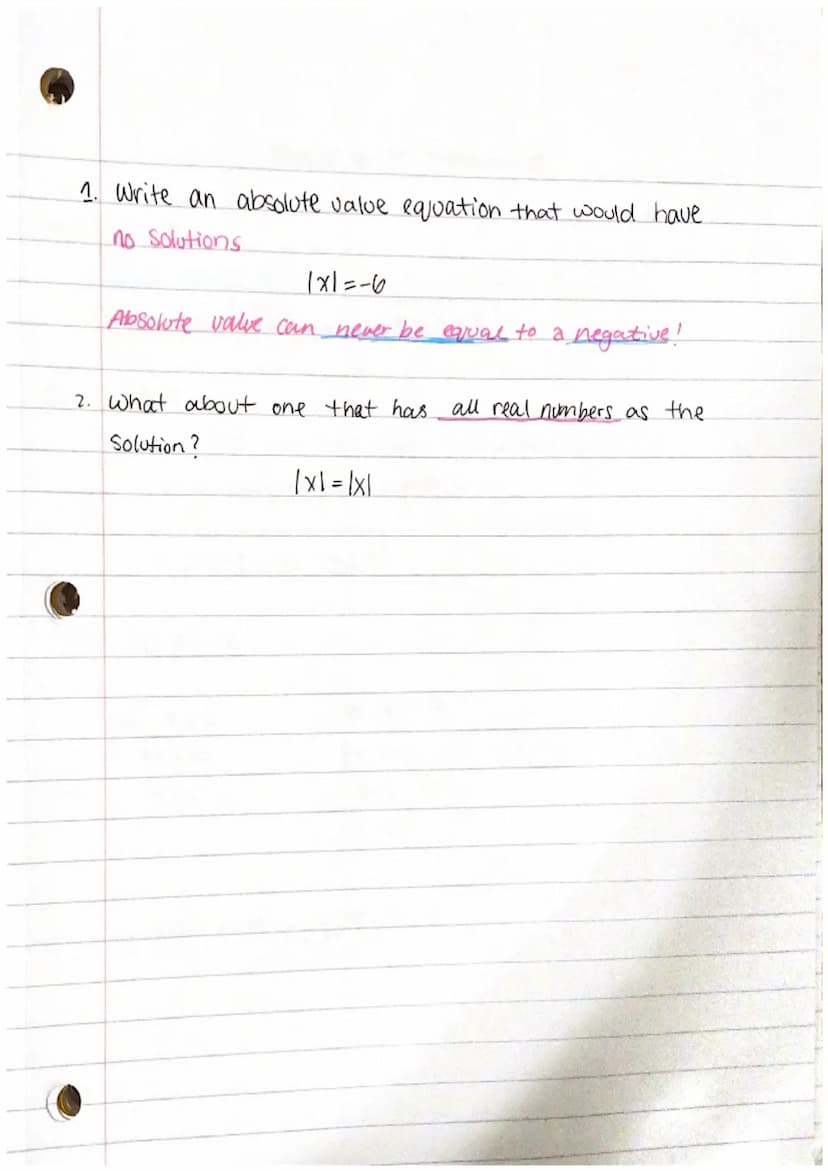 1. Write an absolute value equation that would have
no solutions
|x|=-6
Absolute value can never be equal to a negative!
2. What about one that has all real numbers as the
Solution?
|x|=|x|